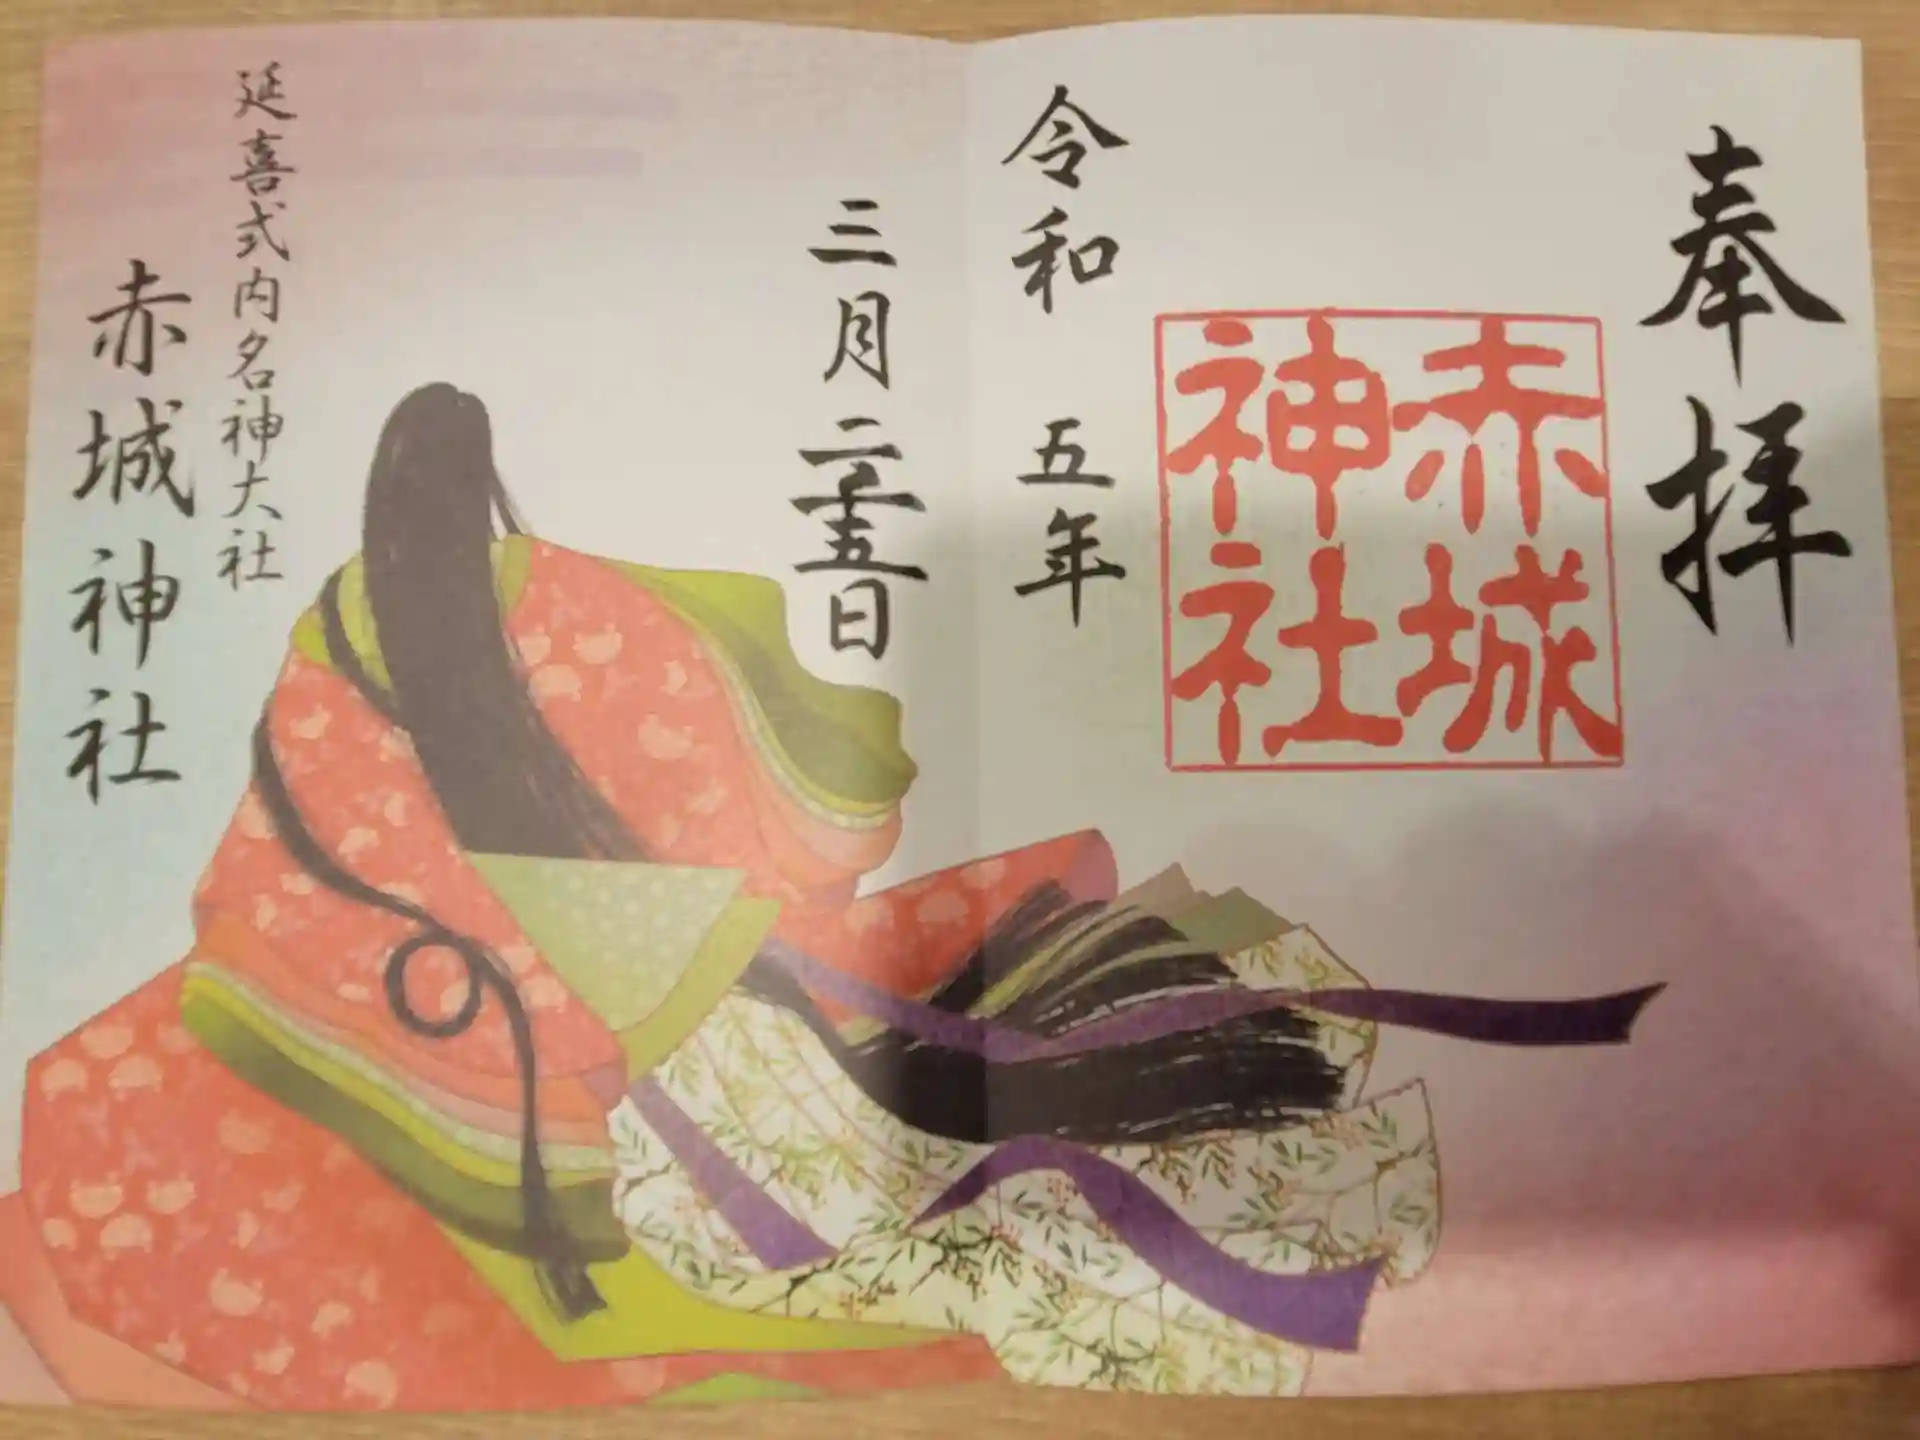 奉拝
赤城
神社
令和五年
三月二十五日
延喜式内名神大社
赤城神社